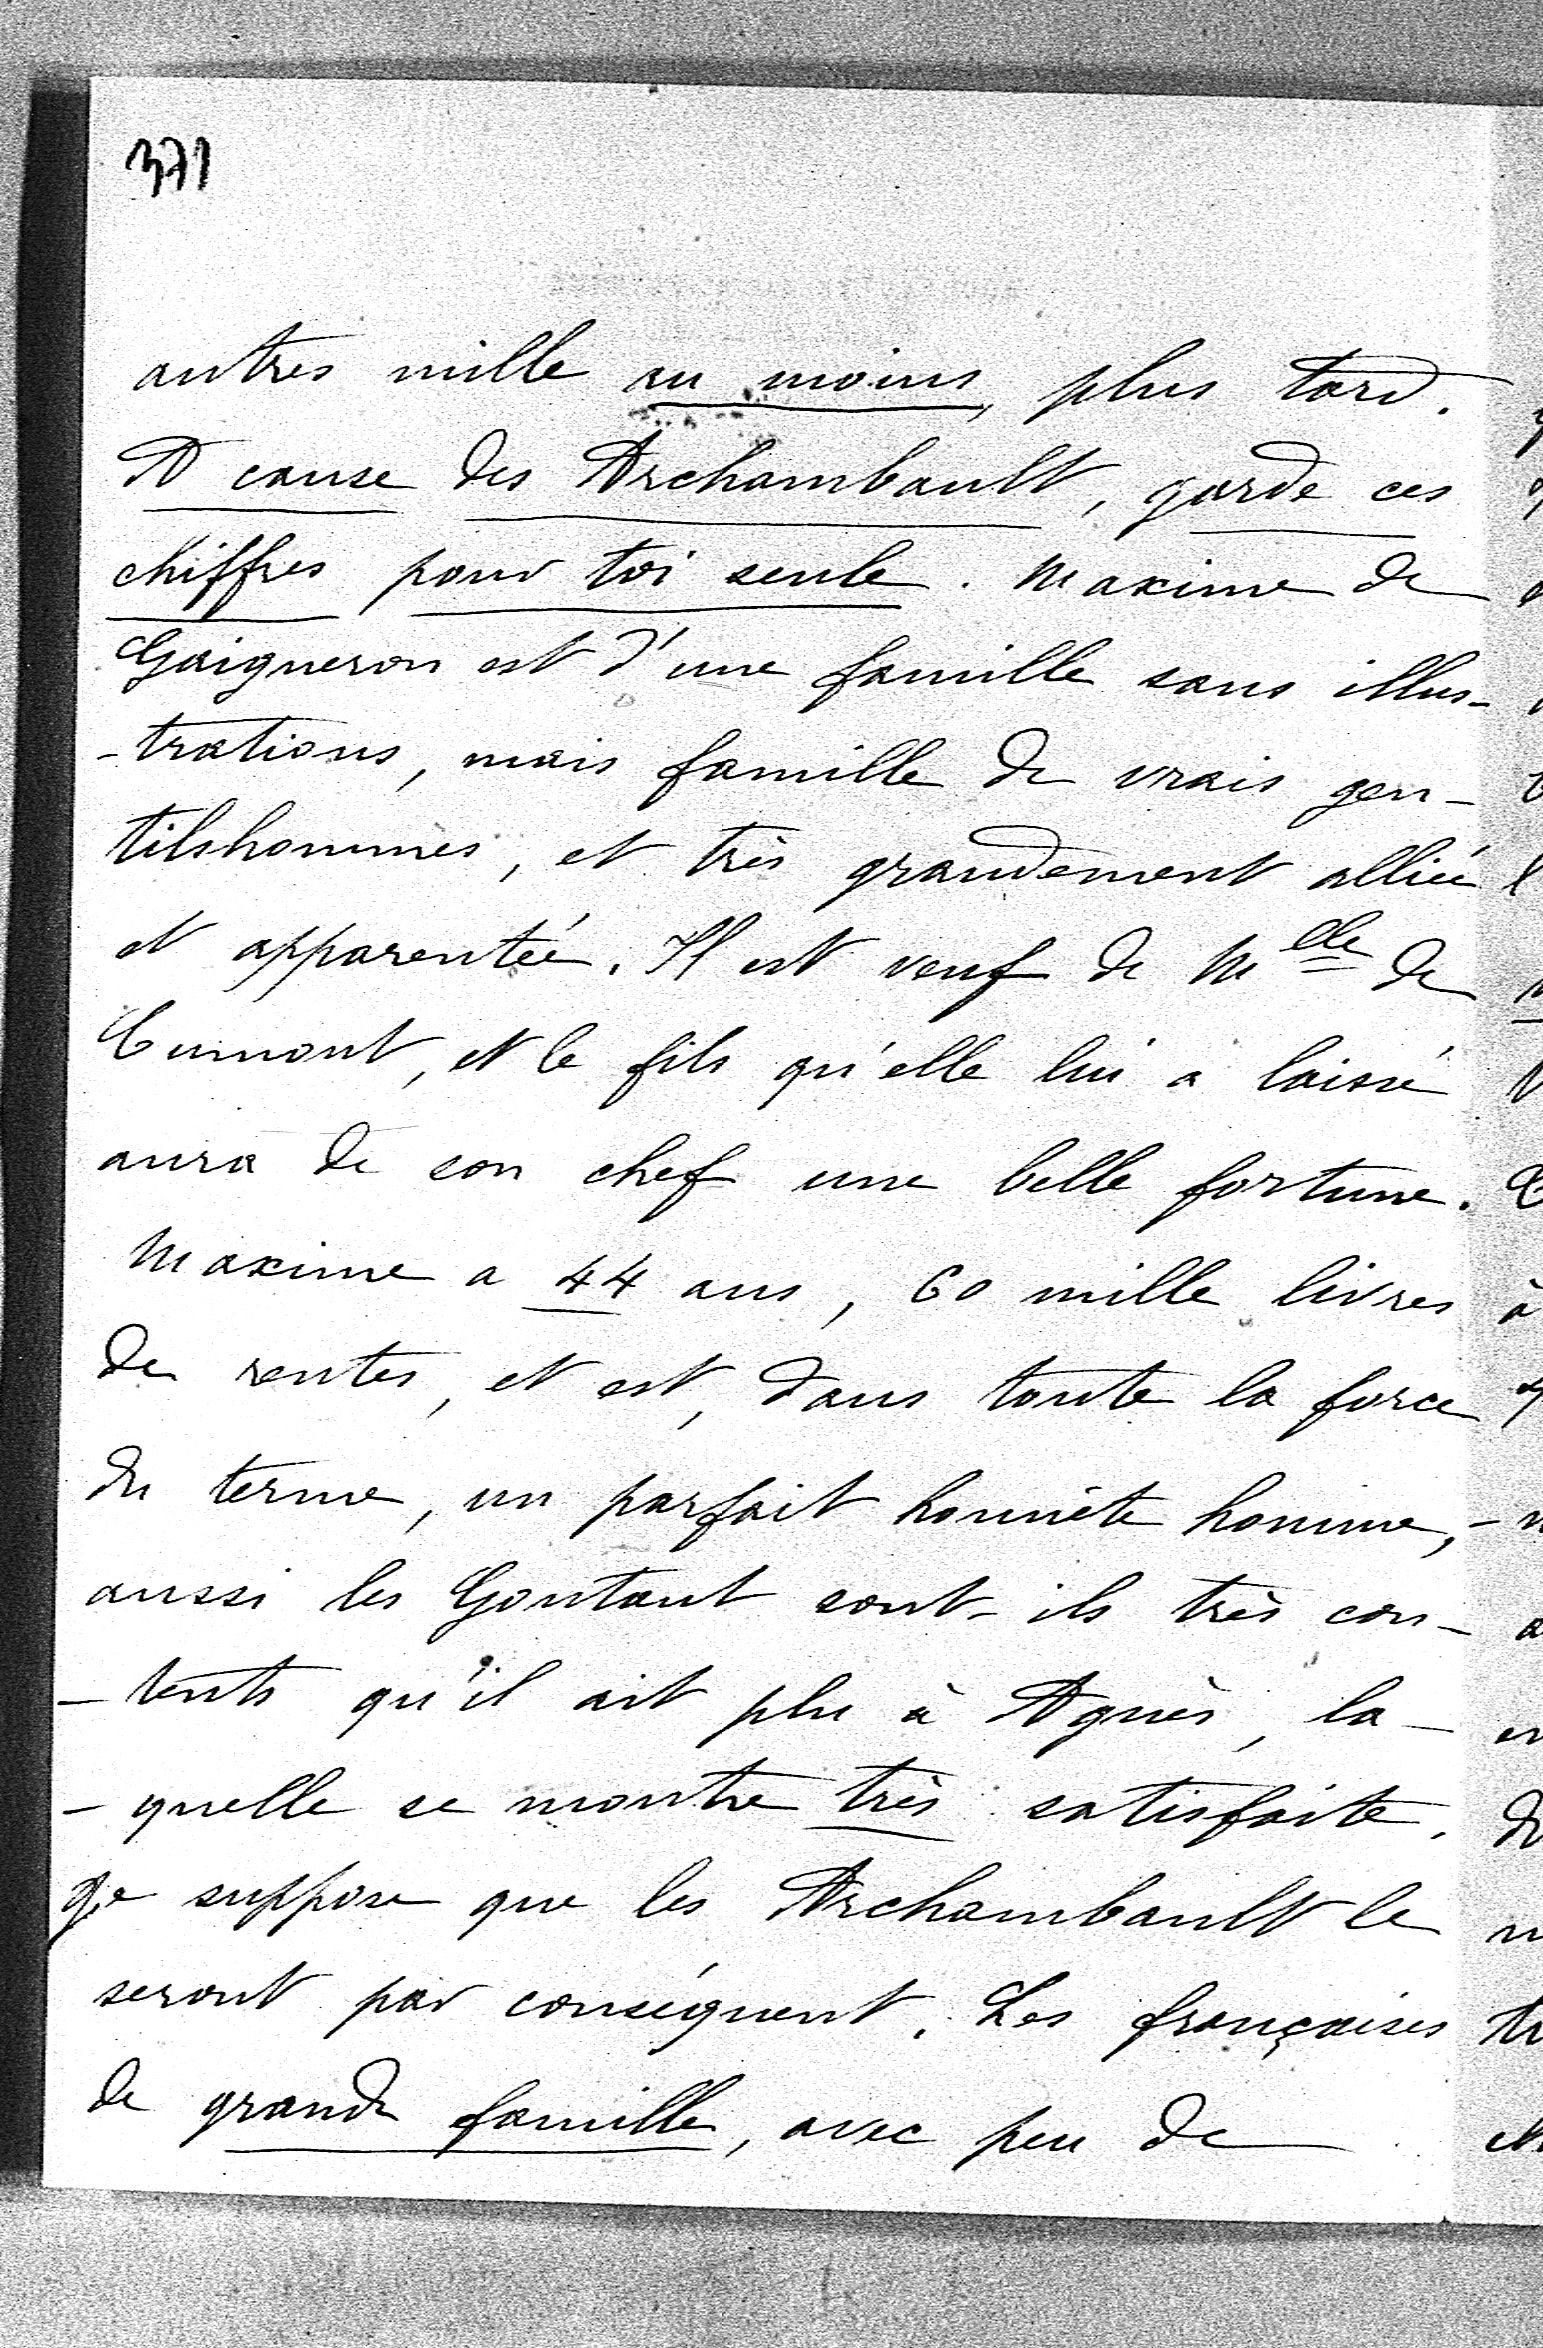 371
autres mille au moins, plus tard.
A cause des Archambault, garde ces
chiffres pour toi seule. Maxime de
Gaigneron est d'une famille sans illus-
-trations, mais famille de vrais gen-
tilshommes, et très grandement alliée
et apparentée. Il est veuf de Melle de
Cumont, et le fils qu'elle lui a laissé
aura de son chef une belle fortune.
Maxime a 44 ans, 60 mille livres
de rentes, et est, dans toute la force
du terme, un parfait honnête homme,-
aussi les Gontaut sont-ils très con-
-tents qu'il ait plu à Agnès, la-
-quelle se montre très satisfaite.
Je suppose que les Archambault le
seront par conséquent. Les françaises
de grande famille, avec peu de